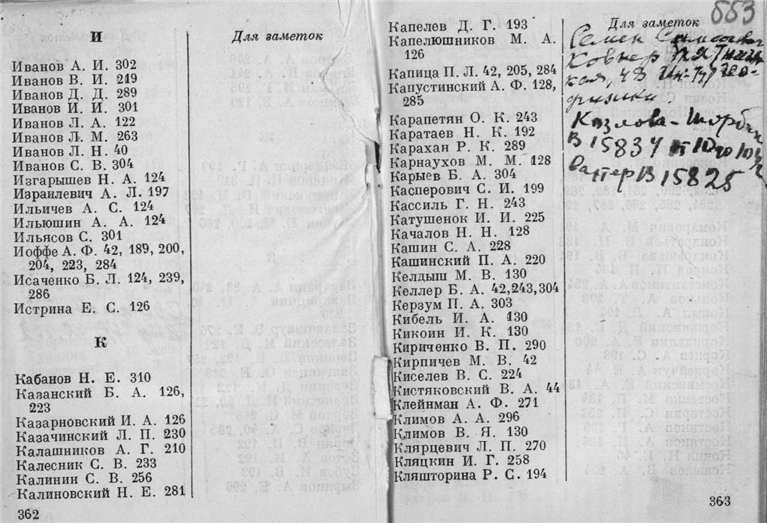 И
Для заметок
Иванов А. И. 302
Иванов В. И. 219
Иванов Д. Д. 289
Иванов И. И. 301
Иванов Л. А. 122
Иванов Л. М. 263
Иванов Л. Н. 40
Иванов С. В. 304
Изгарышев Н. А. 124
Израилевич А. Л. 197
Ильичев А. С. 124
Ильюшин А. А. 124
Ильясов С. 301
Иоффе А. Ф. 42, 189, 200,
204, 223, 284
Исаченко Б. Л. 124, 239,
286
Истрина Е. С. 126
К
Кабанов Н. Е. 310
Казанский Б. А. 126,
223
Казарновский И. А. 126
Казачинский Л. П. 230
Калашников А. Г. 210
Калесник С. В. 233
Калинин С. В. 256
Калиновский Н. Е. 281
362
Капелев Д. Г. 193
Капелюшников М. А.
126
Капица П. Л. 42, 205, 284
Капустинский А. Ф. 128,
285
Карапетян О. К. 243
Каратаев Н. К. 192
Карахан Р. К. 289
Карнаухов М. М. 128
Карыев Б. А. 304
Касперович С. И. 199
Кассиль Г. Н. 243
Катушенок И. И. 225
Качалов Н. Н. 128
Кашин С. А. 228
Кашинский П. А. 220
Келдыш М. В. 130
Келлер Б. А. 42,243,304
Керзум П. А. 303
Кибель И. А. 130
Кикоин И. К. 130
Кириченко В. П. 290
Кирпичев М. В. 42
Киселев В. С. 224
Кистяковский В. А. 44
Клейнман А. Ф. 271
Климов А. А. 296
Климов В. Я. 130
Клярцевич Л. П. 270
Кляцкин И. Г. 258
Кляшторина Р. С. 194
553
Для заметок
Семен
Ковнер Пятниц-
кая, 48 Ин-т Гео-
физики
Козлова-
В 15834
В 15825
363